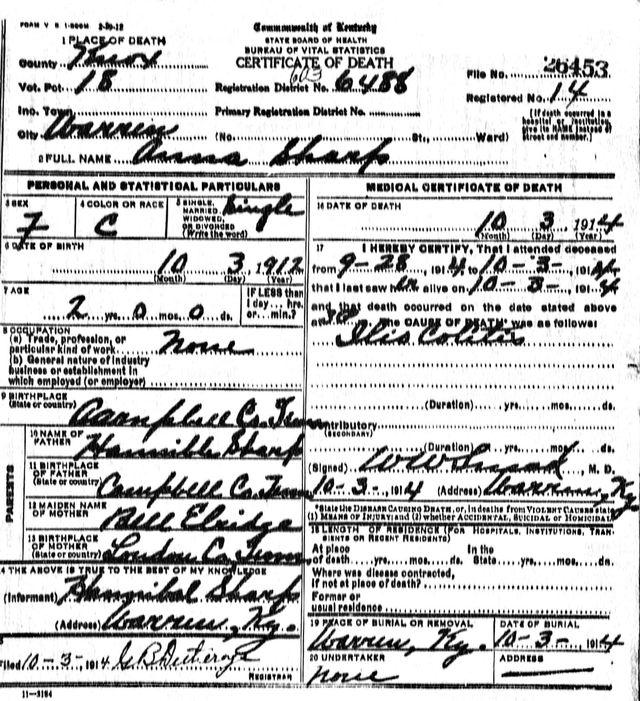 FORM V S 1-500M 2-20-12
Commonwealth of Kentucky
STATE BOARD OF HEALTH
BUREAU OF VITAL STATISTICS
CERTIFICATE OF DEATH
1 PLACE OF DEATH
County Knox
Vot. Pct 18
Registration District No. 603 6488
File No. 26453
Registered No. 14
Inc. Town
Primary Registration District No.
City Warren (No. St., Ward)
[If death occurred in a hospital or institution, give its NAME instead of street and number.]
2 FULL NAME Anna Sharp
PERSONAL AND STATISTICAL PARTICULARS
3 SEX F
4 COLOR OR RACE C
5 SINGLE, MARRIED, WIDOWED, OR DIVORCED (Write the word) Single
6 DATE OF BIRTH
10 3, 1912
(Month) (Day) (Year)
7 AGE
2 yrs. 0 mos. 0 ds.
IF LESS than 1 day... hrs. or min.?
8 OCCUPATION
(a) Trade, profession, or particular kind of work None
(b) General nature of industry business or establishment in which employed (or employer)
9 BIRTHPLACE
(State or country) Campbell Co. Tenn
PARENTS
10 NAME OF FATHER Hannible Sharp
11 BIRTHPLACE OF FATHER (State or country) Campbell Co. Tenn
12 MAIDEN NAME OF MOTHER Bell Elridge
13 BIRTHPLACE OF MOTHER (State or country) Loudon Co. Tenn
14 THE ABOVE IS TRUE TO THE BEST OF MY KNOWLEDGE
(Informant) Hannibal Sharp
(Address) Warren, Ky.
Filed 10-3-, 1914
REGISTRAR
11-3184
MEDICAL CERTIFICATE OF DEATH
16 DATE OF DEATH
10 3, 1914
(Month) (Day) (Year)
17 I HEREBY CERTIFY, That I attended deceased
from 9-28, 1914, to 10-3-, 1914,
that I last saw her alive on 10-3-, 1914,
and that death occurred on the date stated above
at The CAUSE OF DEATH* was as follows:
Ilio Colitis
(Duration) yrs. mos. ds.
Contributory
(SECONDARY)
(Duration) yrs. mos. ds.
(Signed) W W, M. D.
10-3-, 1914 (Address) Warren, Ky
*State the DISEASE CAUSING DEATH, or, in deaths from VIOLENT CAUSES state (1) MEANS OF INJURY; and (2) whether ACCIDENTAL, SUICIDAL or HOMICIDAL.
18 LENGTH OF RESIDENCE (FOR HOSPITALS, INSTITUTIONS, TRANSIENTS OR RECENT RESIDENTS)
At place of death yrs. mos. ds. In the State yrs. mos. ds.
Where was disease contracted, if not at place of death?
Former or usual residence
19 PLACE OF BURIAL OR REMOVAL
Warren, Ky.
DATE OF BURIAL
10-3-, 1914
20 UNDERTAKER
none
ADDRESS